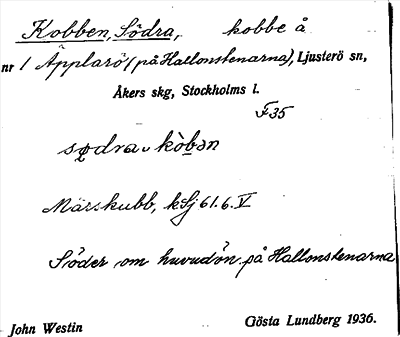 Kobben, Södra, kobbe å
nr 1 Äpplarö (på Hallonstenarna), Ljusterö sn,
Åkers skg, Stockholms l.
F35
södra kòbən
Märskubb, kSj 61.6.V
Söder om huvudön på Hallonstenarna
John Westin Gösta Lundberg 1936.